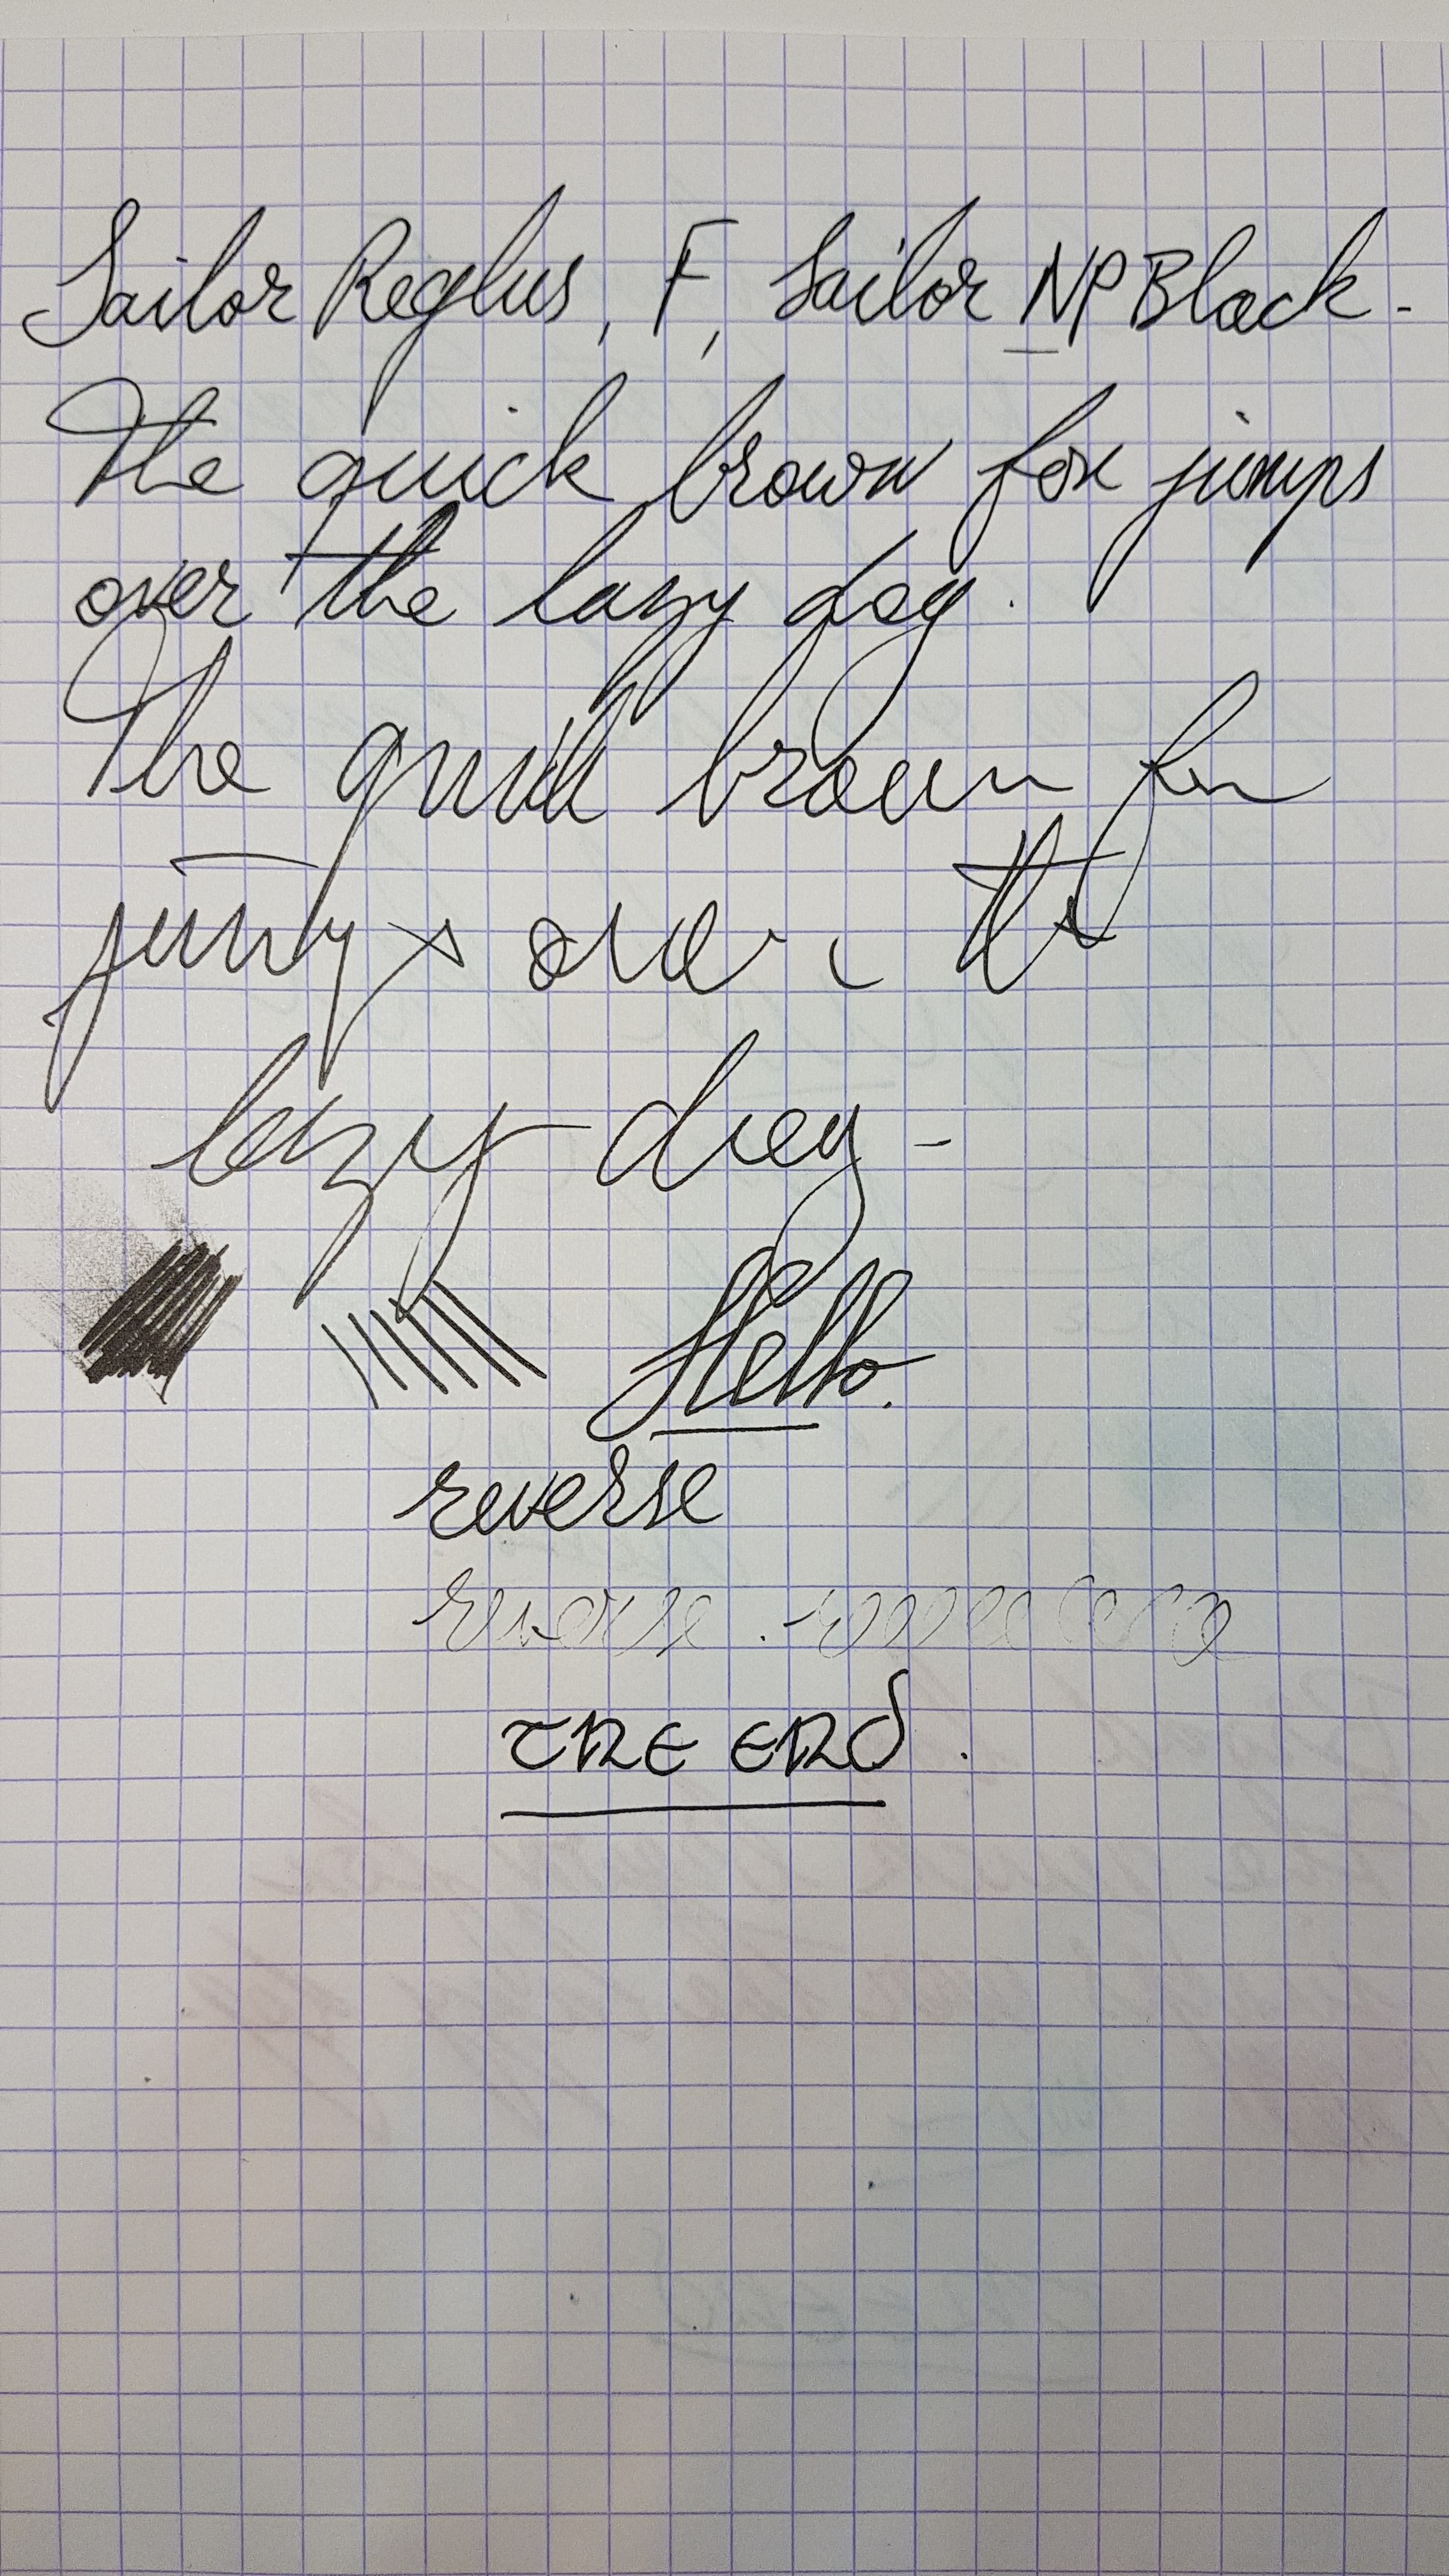 Sailor Reglus, F, Sailor NP Black.
The quick brown fox jumps
over the lazy dog.
The quick brown fox
jumps over the
lazy dog -
Hello.
reverse
reverse.
THE END.